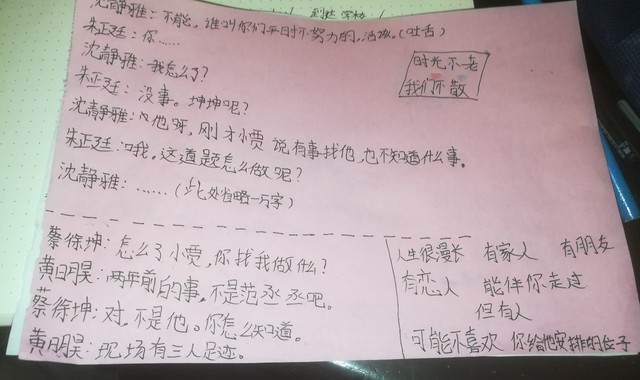 沈静雅：不能。谁叫你们平时不努力的，活该。(吐舌)
朱正廷：你……
沈静雅：我怎么了？
朱正廷：没事。坤坤呢？
沈静雅：他呀，刚才小贾说有事找他，也不知道什么事。
朱正廷：哦，这道题怎么做呢？
沈静雅：……(此处省略一万字)
时光不老
我们不散
蔡徐坤：怎么了小贾，你找我做什么？
黄明昊：两年前的事，不是范丞丞吧。
蔡徐坤：对，不是他。你怎么知道。
黄明昊：现场有三人足迹。
人生很漫长 有家人 有朋友
有恋人 能伴你走过
但有人
可能不喜欢 你给他安排的位子